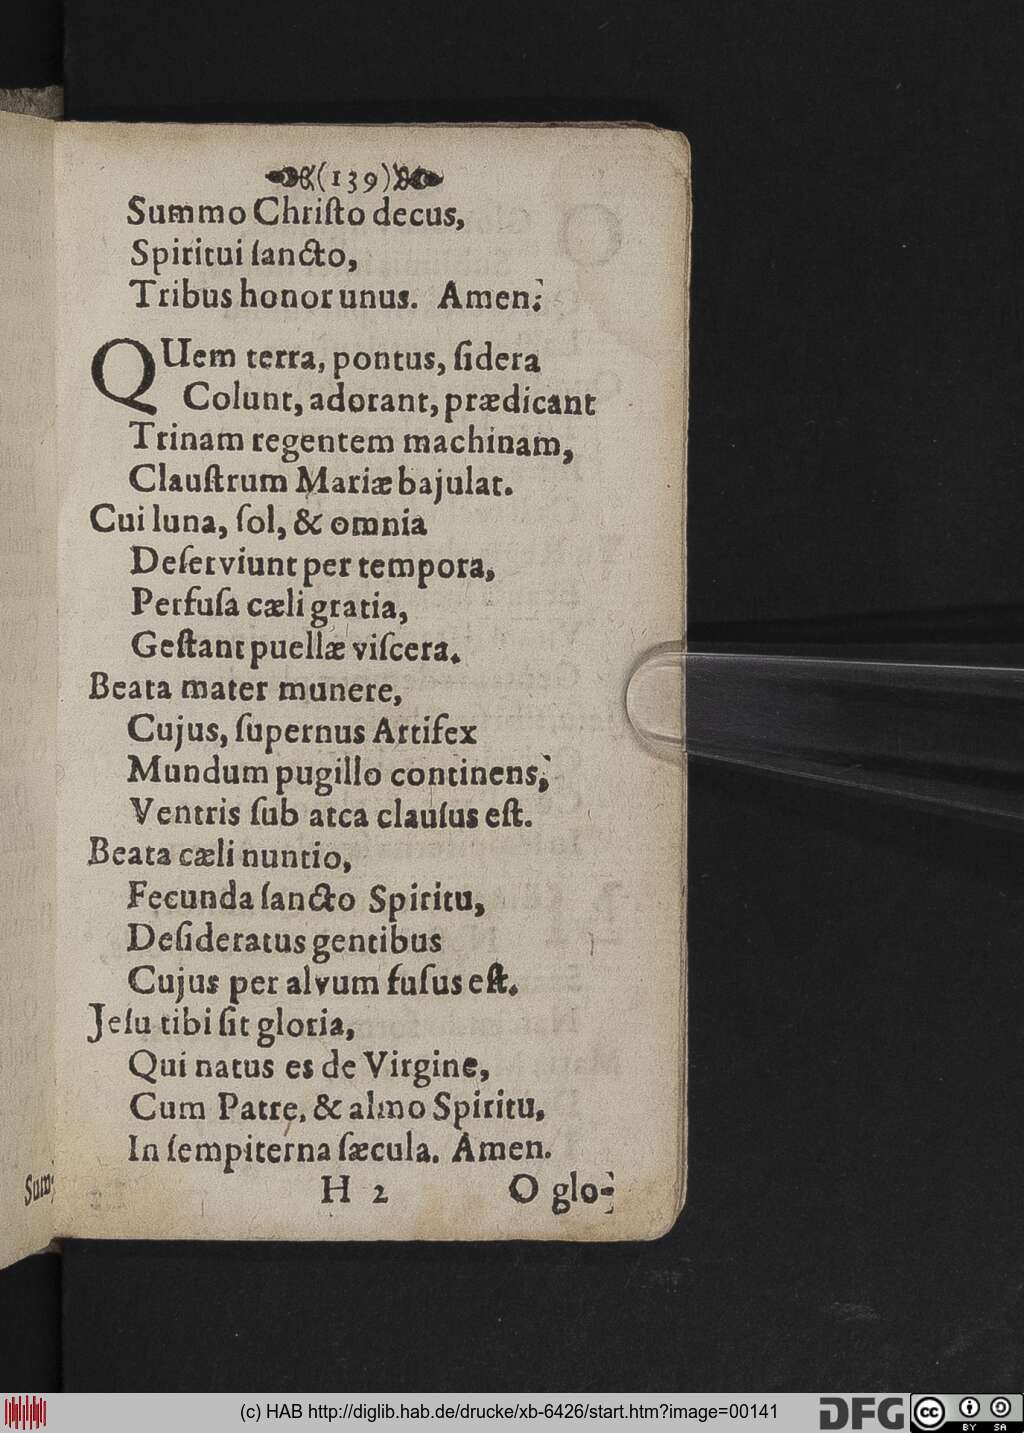 (139)
Summo Chriſto decus,
Spiritui ſancto,
Tribus honor unus. Amen.
QUem terra, pontus, ſidera
Colunt, adorant, prædicant
Trinam regentem machinam,
Clauſtrum Mariæ bajulat.
Cui luna, ſol, & omnia
Deſerviunt per tempora,
Perfuſa cæli gratia,
Geſtant puellæ viſcera.
Beata mater munere,
Cujus, ſupernus Artifex
Mundum pugillo continens,
Ventris ſub arca clauſus eſt.
Beata cæli nuntio,
Fecunda ſancto Spiritu,
Deſideratus gentibus
Cujus per alvum fuſus eſt.
Jeſu tibi ſit gloria,
Qui natus es de Virgine,
Cum Patre, & almo Spiritu,
In ſempiterna ſæcula. Amen.
H 2 O glo-
Sum-
(c) HAB http://diglib.hab.de/drucke/xb-6426/start.htm?image=00141
DFG
cc BY SA